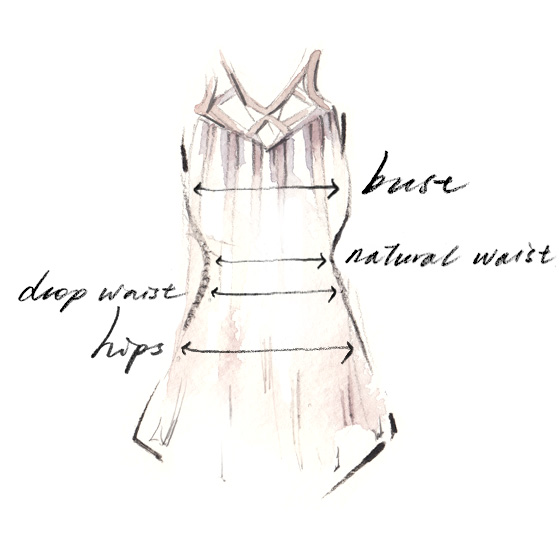 bust
natural waist
drop waist
hips